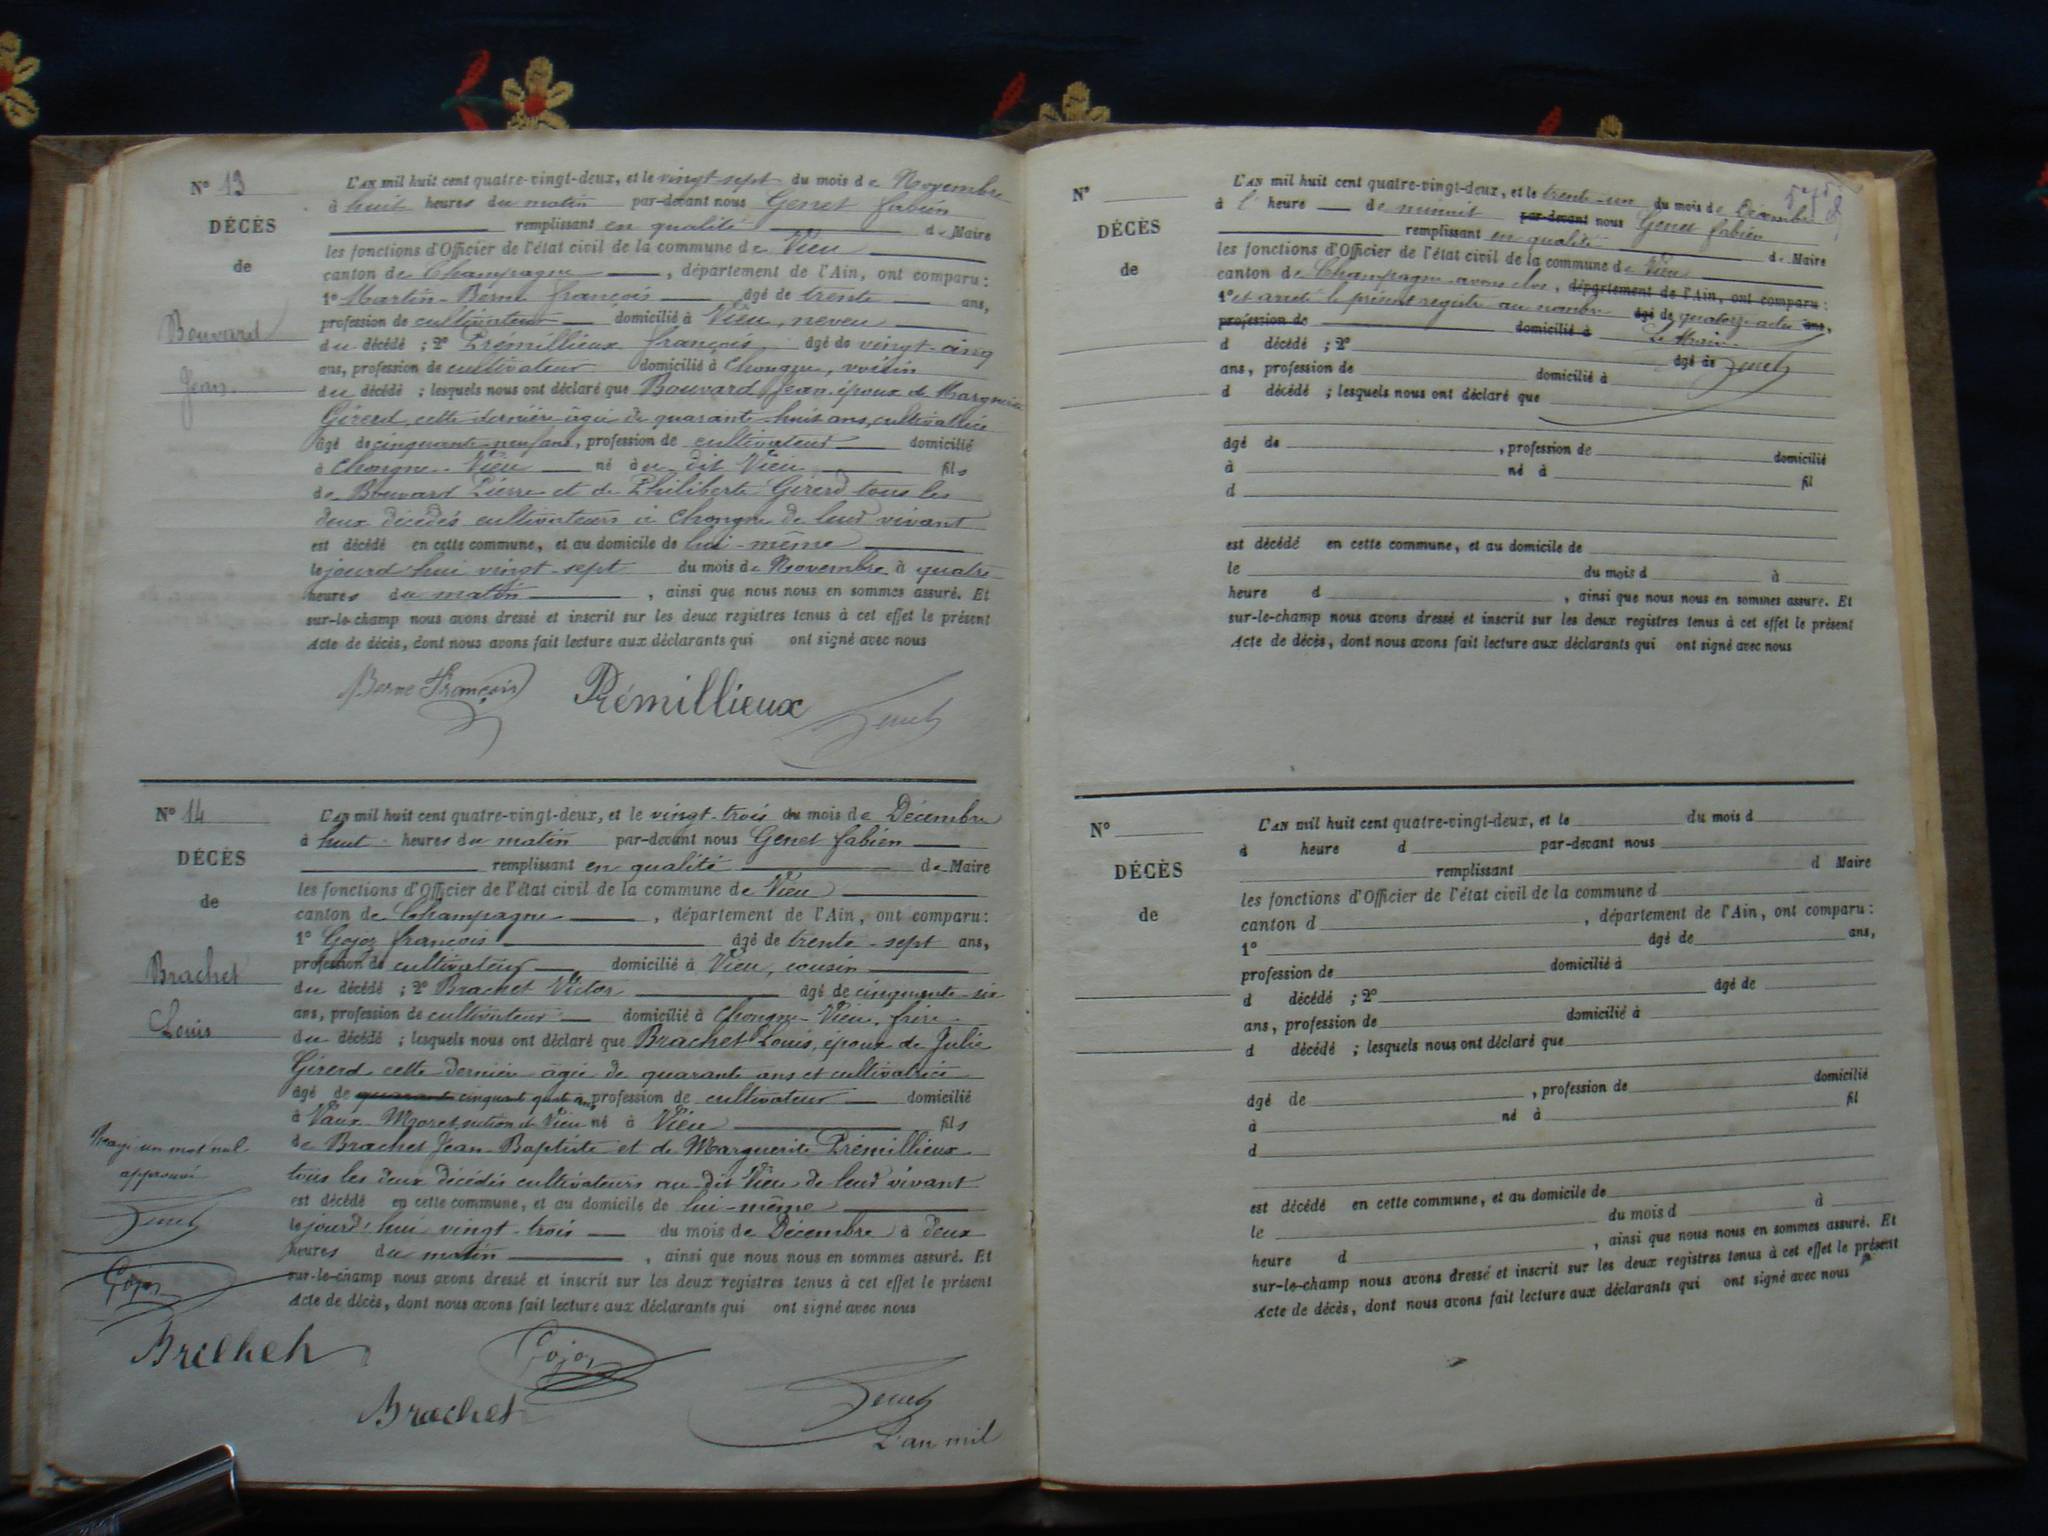 N° 13
DÉCÈS
de
Bouvard
Jean
L'AN mil huit cent quatre-vingt-deux, et le vingt sept du mois de Novembre
à huit heures du matin par-devant nous Genet fabien
remplissant en qualité de Maire
les fonctions d'Officier de l'état civil de la commune de Vieu
canton de Champagne, département de l'Ain, ont comparu :
1° Martin-Berne françois âgé de trente ans,
profession de cultivateur domicilié à Vieu, neveu
du décédé ; 2° Prémillieux françois, âgé de vingt-cinq
ans, profession de cultivateur domicilié à Chongne, voisin
du décédé ; lesquels nous ont déclaré que Bouvard Jean, époux de Marguerite
Girerd, cette dernière âgée de quarante-huit ans, cultivatrice
âgé de cinquante-neuf ans, profession de cultivateur domicilié
à Chongne-Vieu né à au dit Vieu fils
de Bouvard Pierre et de Philiberte Girerd tous les
deux décédés cultivateurs à Chongne de leur vivant
est décédé en cette commune, et au domicile de lui-même
le jourd'hui vingt-sept du mois de Novembre à quatre
heures du matin, ainsi que nous nous en sommes assuré. Et
sur-le-champ nous avons dressé et inscrit sur les deux registres tenus à cet effet le présent
Acte de décès, dont nous avons fait lecture aux déclarants qui ont signé avec nous
Berne François Prémillieux Genet
N° 14
DÉCÈS
de
Brachet
Louis
L'AN mil huit cent quatre-vingt-deux, et le vingt-trois du mois de Décembre
à huit heures du matin par-devant nous Genet fabien
remplissant en qualité de Maire
les fonctions d'Officier de l'état civil de la commune de Vieu
canton de Champagne, département de l'Ain, ont comparu :
1° Gojoz françois âgé de trente-sept ans,
profession de cultivateur domicilié à Vieu, cousin
du décédé ; 2° Brachet Victor âgé de cinquante-six
ans, profession de cultivateur domicilié à Chongne-Vieu, frère
du décédé ; lesquels nous ont déclaré que Brachet Louis, époux de Julie
Girerd cette dernière âgée de quarante ans et cultivatrice
âgé de quarante cinquant quat ans profession de cultivateur domicilié
à Vaux-Moret section de Vieu né à Vieu fils
de Brachet Jean-Baptiste et de Marguerite Prémillieux
tous les deux décédés cultivateurs au dit Vieu de leur vivant
est décédé en cette commune, et au domicile de lui-même
le jourd'hui vingt-trois du mois de Décembre à deux
heures du matin, ainsi que nous nous en sommes assuré. Et
sur-le-champ nous avons dressé et inscrit sur les deux registres tenus à cet effet le présent
Acte de décès, dont nous avons fait lecture aux déclarants qui ont signé avec nous
Rayé un mot nul
approuvé
Genet
Gojoz
Brachet
Gojoz
Brachet
Genet
L'an mil
N°
DÉCÈS
de
L'AN mil huit cent quatre-vingt-deux, et le trente-un du mois de Décembre
à l' heure de minuit par-devant nous Genet fabien
remplissant en qualité de Maire
les fonctions d'Officier de l'état civil de la commune de Vieu
canton de Champagne avons clos, département de l'Ain, ont comparu :
1° et arrêté le présent registre au nombre âgé de quatorze actes ans,
profession de domicilié à Le Maire
d décédé ; 2° âgé de Genet
ans, profession de domicilié à
d décédé ; lesquels nous ont déclaré que
âgé de , profession de domicilié
à né à fil
d
est décédé en cette commune, et au domicile de
le du mois d à
heure d , ainsi que nous nous en sommes assuré. Et
sur-le-champ nous avons dressé et inscrit sur les deux registres tenus à cet effet le présent
Acte de décès, dont nous avons fait lecture aux déclarants qui ont signé avec nous
N°
DÉCÈS
de
L'AN mil huit cent quatre-vingt-deux, et le du mois d
à heure d par-devant nous
remplissant d Maire
les fonctions d'Officier de l'état civil de la commune d
canton d , département de l'Ain, ont comparu :
1° âgé de ans,
profession de domicilié à
d décédé ; 2° âgé de
ans, profession de domicilié à
d décédé ; lesquels nous ont déclaré que
âgé de , profession de domicilié
à né à fil
d
est décédé en cette commune, et au domicile de
le du mois d à
heure d , ainsi que nous nous en sommes assuré. Et
sur-le-champ nous avons dressé et inscrit sur les deux registres tenus à cet effet le présent
Acte de décès, dont nous avons fait lecture aux déclarants qui ont signé avec nous